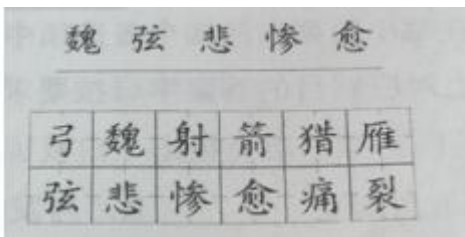 魏弦悲惨愈
弓魏射箭猎雁
弦悲惨愈痛裂